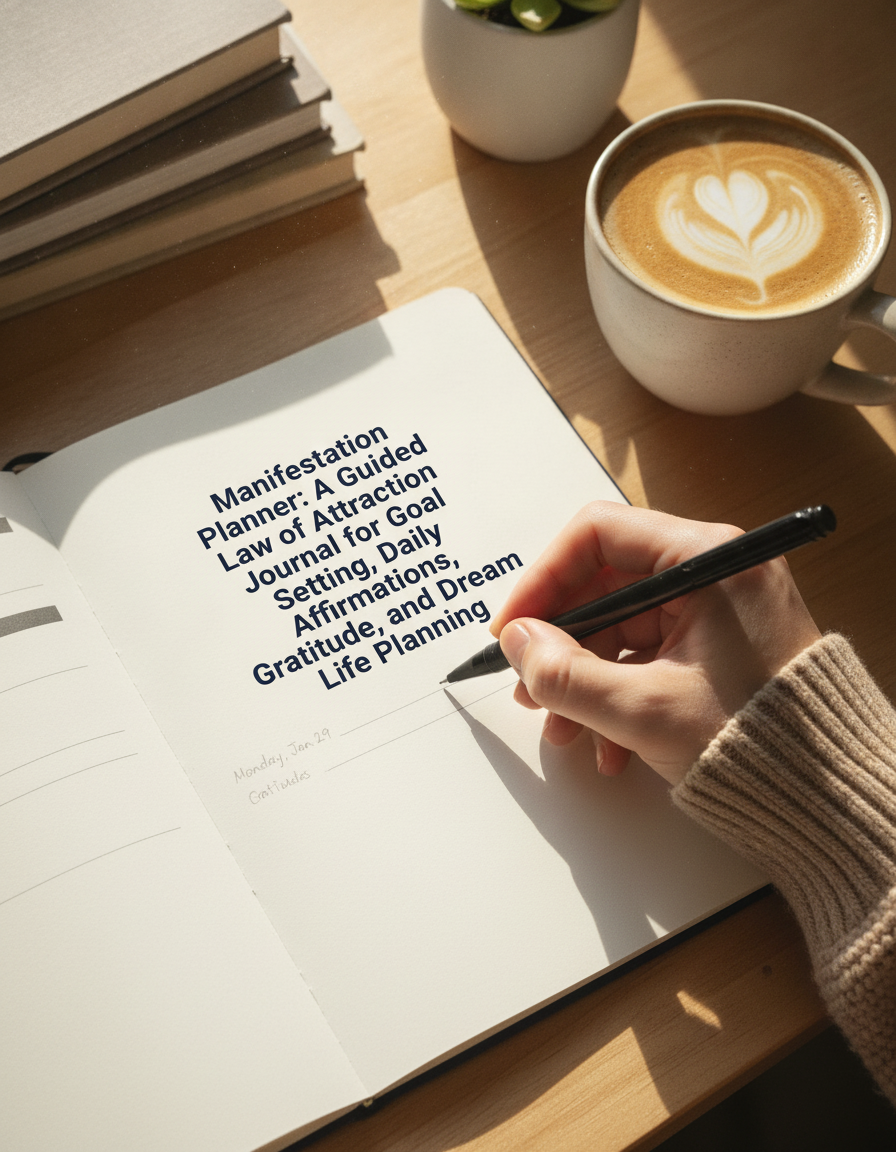 Manifestation
Planner: A Guided
Law of Attraction
Journal for Goal
Setting, Daily
Affirmations,
Gratitude, and Dream
Life Planning
Monday, Jan 29
Gratitudes